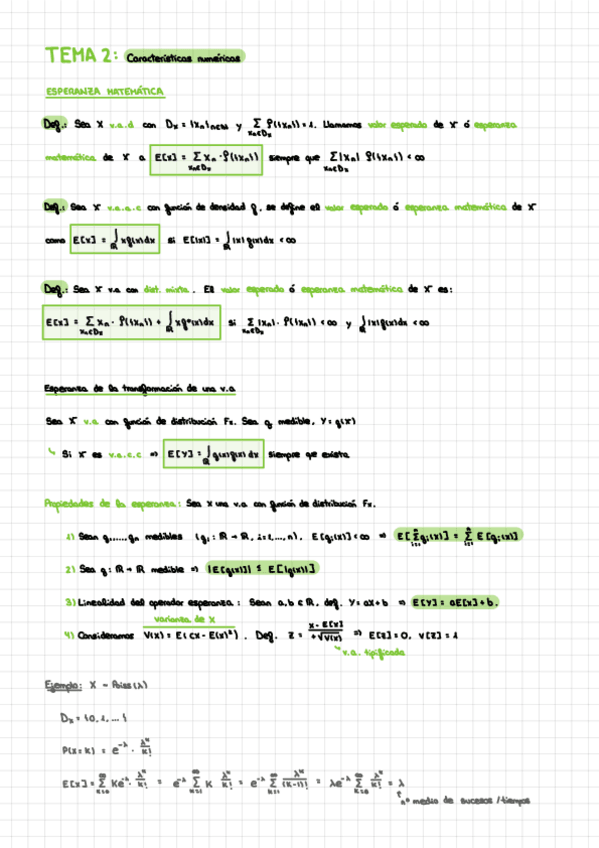 TEMA 2: Características numéricas
ESPERANZA MATEMÁTICA
Def.: Sea X v.a.d con Dx = {xn}n∈N y Σ xn∈Dx P({xn}) = 1. Llamamos valor esperado de X ó esperanza
matemática de X a E[X] = Σ xn∈Dx xn · P({xn}) siempre que Σ xn∈Dx |xn| P({xn}) < ∞
Def.: Sea X v.a.a.c con función de densidad f, se define el valor esperado ó esperanza matemática de X
como E[X] = ∫R xf(x)dx si E[|X|] = ∫R |x| f(x)dx < ∞
Def.: Sea X v.a con dist. mixta. El valor esperado ó esperanza matemática de X es:
E[X] = Σ xn∈Dx xn · P({xn}) + ∫R xf*(x)dx si Σ xn∈Dx |xn| · P({xn}) < ∞ y ∫R |x|f(x)dx < ∞
Esperanza de la transformación de una v.a
Sea X v.a con función de distribución Fx. Sea g medible, Y = g(X)
Si X es v.a.c.c ⇒ E[Y] = ∫R g(x)f(x)dx siempre que exista
Propiedades de la esperanza: Sea X una v.a con función de distribución Fx.
1) Sean g1,...,gn medibles (gi: R → R, i=1,...,n), E[gi(x)] < ∞ ⇒ E[Σ i=1 n gi(x)] = Σ i=1 n E[gi(x)]
2) Sea g: R → R medible ⇒ |E[g(x)]| ≤ E[|g(x)|]
3) Linealidad del operador esperanza: Sean a,b ∈ R, def. Y = aX+b ⇒ E[Y] = aE[X]+b.
varianza de X
4) Consideramos V(X) = E((X - E(X))²). Def. Z = X - E[X] / +√V(X) ⇒ E[Z] = 0, V[Z] = 1
v.a. tipificada
Ejemplo: X ~ Poiss(λ)
Dx = {0, 1, ...}
P(X=K) = e^-λ · λ^K / K!
E[X] = Σ K=0 ∞ K e^-λ · λ^K / K! = e^-λ Σ K=1 ∞ K λ^K / K! = e^-λ Σ K=1 ∞ λ^K / (K-1)! = λe^-λ Σ K=0 ∞ λ^K / K! = λ
nº medio de sucesos /tiempos